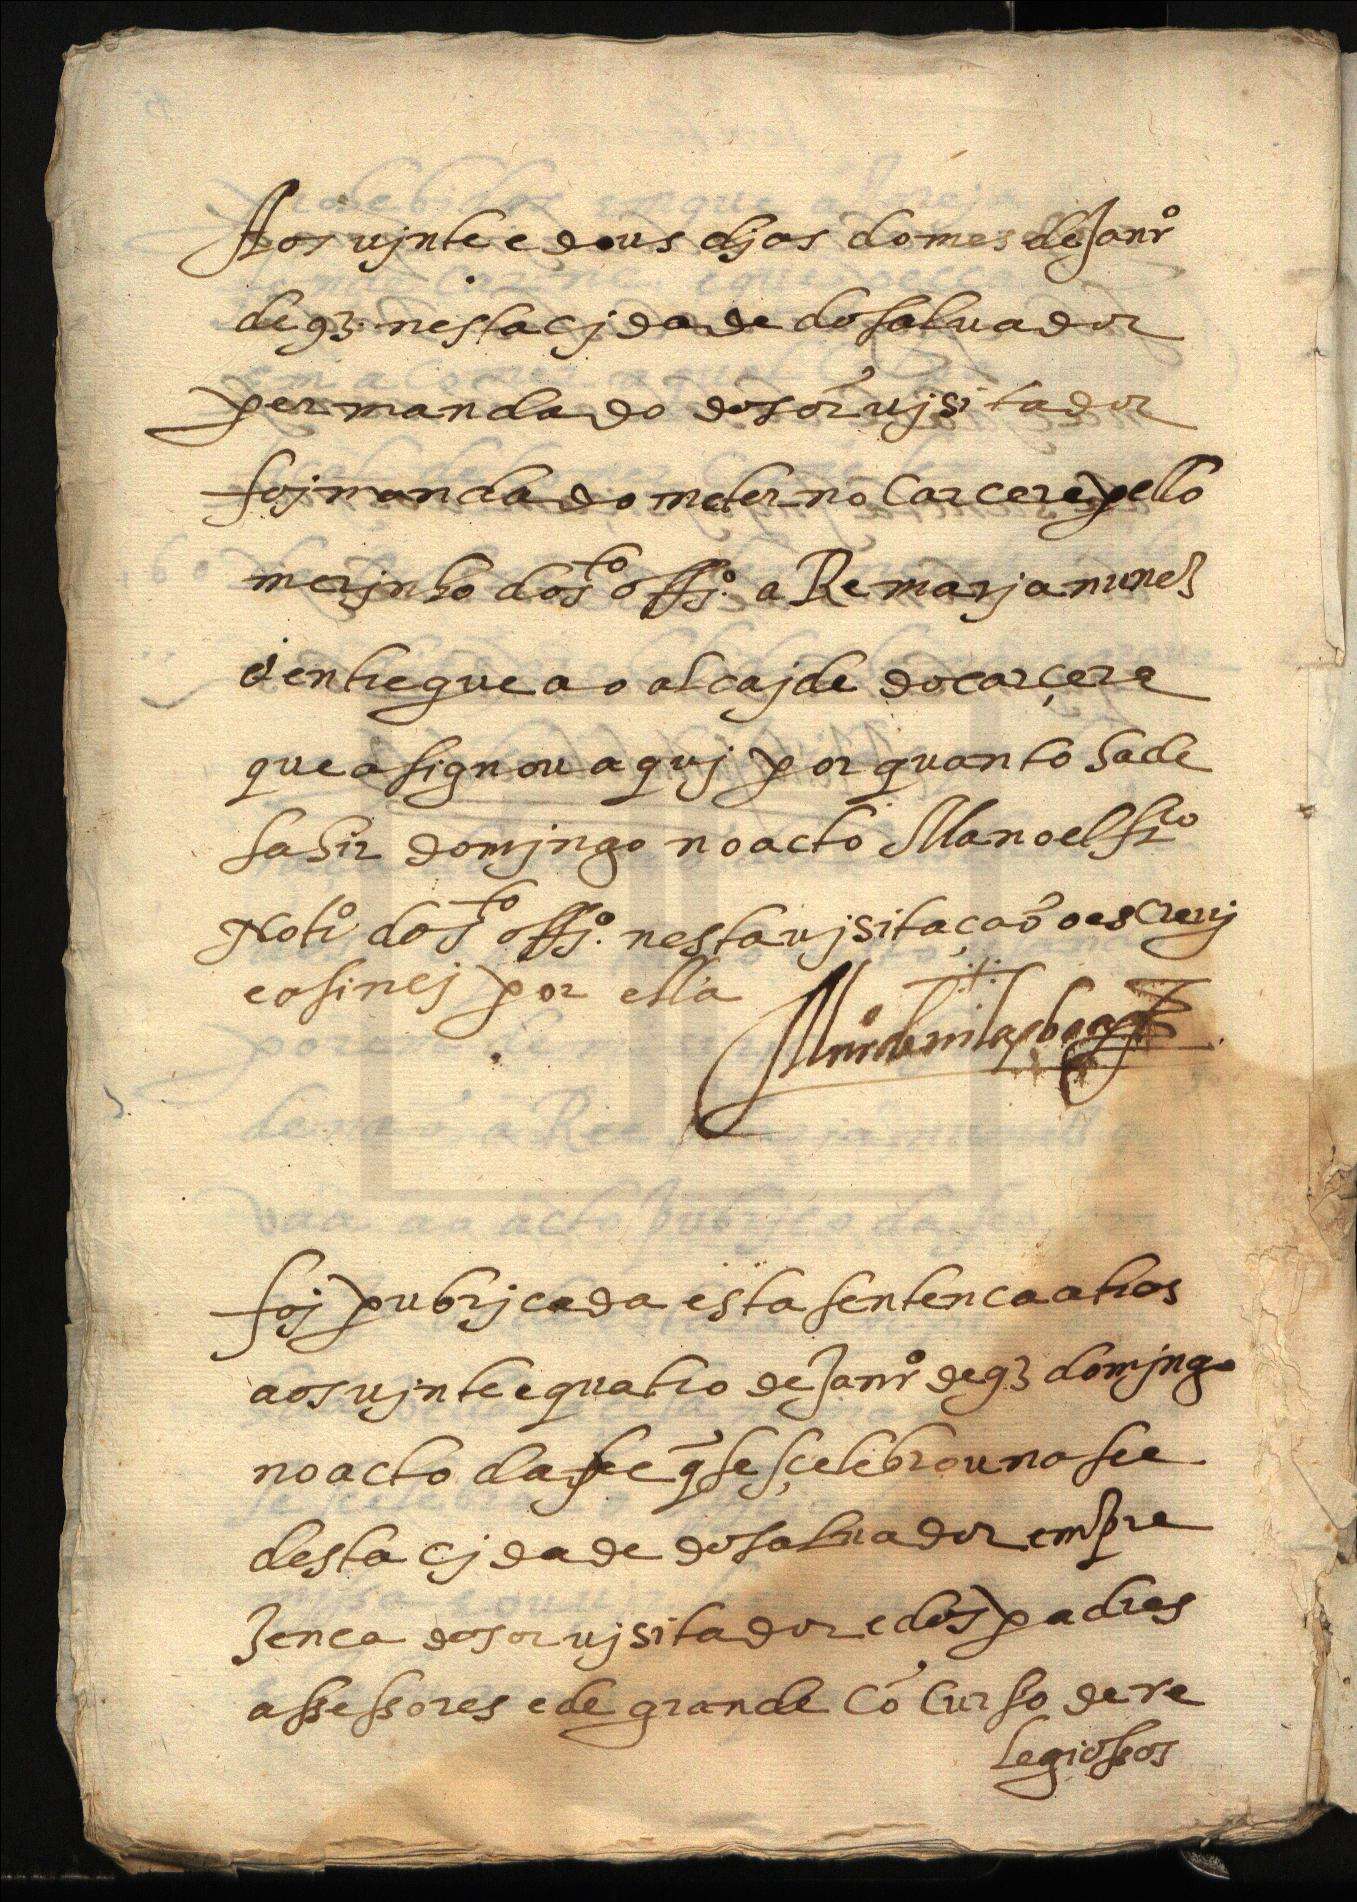 Aos vjnte e dous djas do mes de Janrº
de 93. nesta cjdade do saluador
per mandado do sõr vjsitador
foj mandado meter no Carcere pello
merjnho do sto offjº. a Re marja nunez
e entregue ao alcajde do carçere
que asignou aquj por quanto ha de
sahir domjngo no acto Manoel frco
Notrº do sto offjº. nesta vjsitação o escreuj
e asinej por ella

foj pubrjcada esta sentenca atras
aos vjnte e quatro de Janrº de 93 domjngo
no acto da fee q̃ se sçelebrou na see
desta cjdade do saluador em pre
zenca do sor vjsitador e dos padres
assessores e de grande cõ Curso de re
legiosos